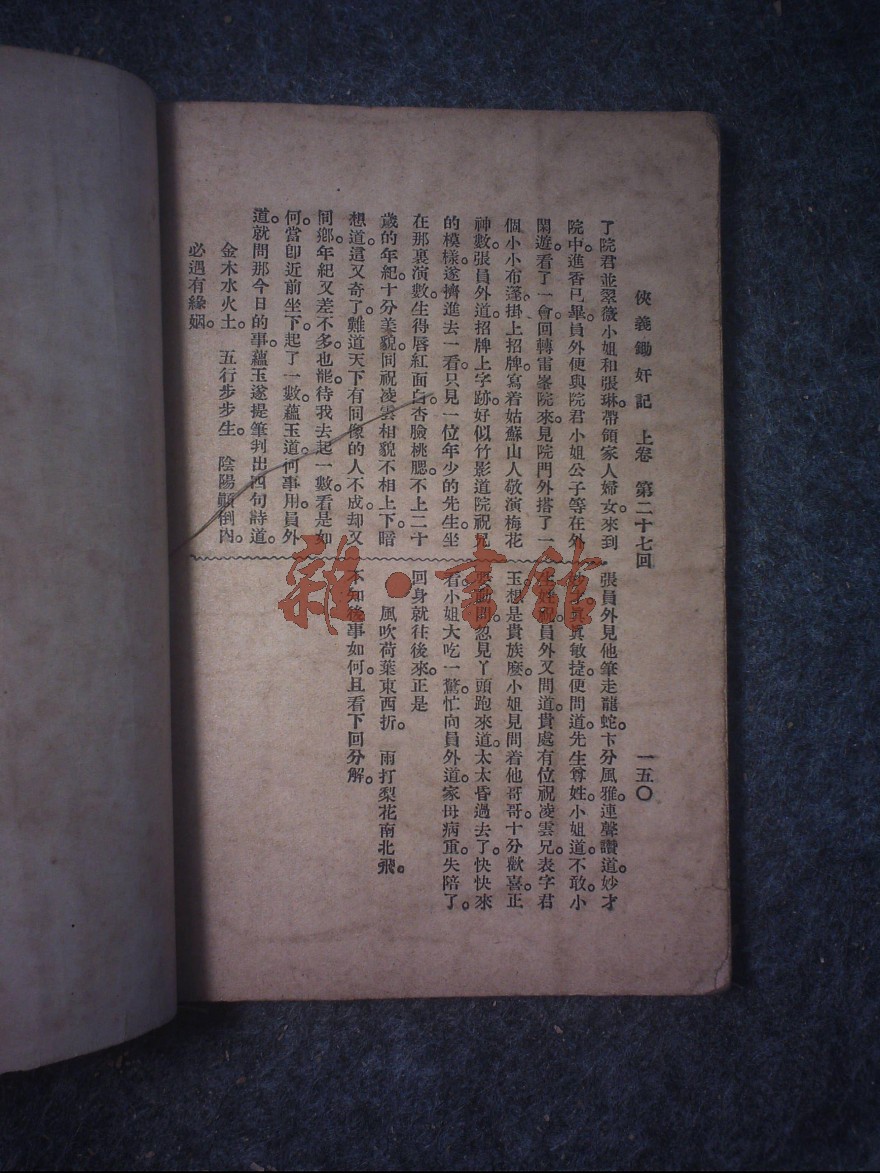 俠義鋤奸記　上卷　第二十七回　一五〇
了院君並翠薇小姐和張琳帶領家人婦女。來到
院中進香已畢。員外便與院君小姐公子等在外
閑遊。看了一會。回轉雷峯院來。見院門外搭了一
個小小布蓬。掛上招牌。寫着姑蘇山人敬演梅花
神數。張員外道。招牌上字跡。好似竹影道院祝兄
的模樣。遂擠進去一看。只見一位年少的先生。坐
在那裏演數。生得唇紅面白。杏臉桃腮。不上二十
歲的年紀。十分美貌。同祝凌雲相貌不相上下。暗
想道。這又奇了。難道天下有同像的人不成。却又
同鄉。年紀又差不多。也罷。待我去起一數。看是如
何。當卽近前坐下。起了一數。蘊玉道。何事用。員外
道。就問那今日的事。蘊玉遂提筆判出四句詩道。
金木水火土。　五行步步生。　陰陽顚倒內。
必遇有緣姻。
張員外見他筆走龍蛇。十分風雅。連聲讚道。妙才
妙才。眞眞敏捷。便問道。先生尊姓。小姐道。不敢。小
生姓祝。員外又問道。貴處有位祝凌雲兄。表字君
玉。想是貴族麽。小姐見問着他哥哥。十分歡喜。正
要動問。忽見丫頭跑來道。太太昏過去了。快快來
看。小姐大吃一驚。忙向員外道。家母病重。失陪了。
回身就往後來。正是
風吹荷葉東西折。　雨打梨花南北飛。
不知後事如何。且看下回分解。
雜·書館